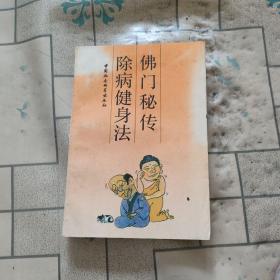 佛门秘传
除病健身法
中国社会科学出版社